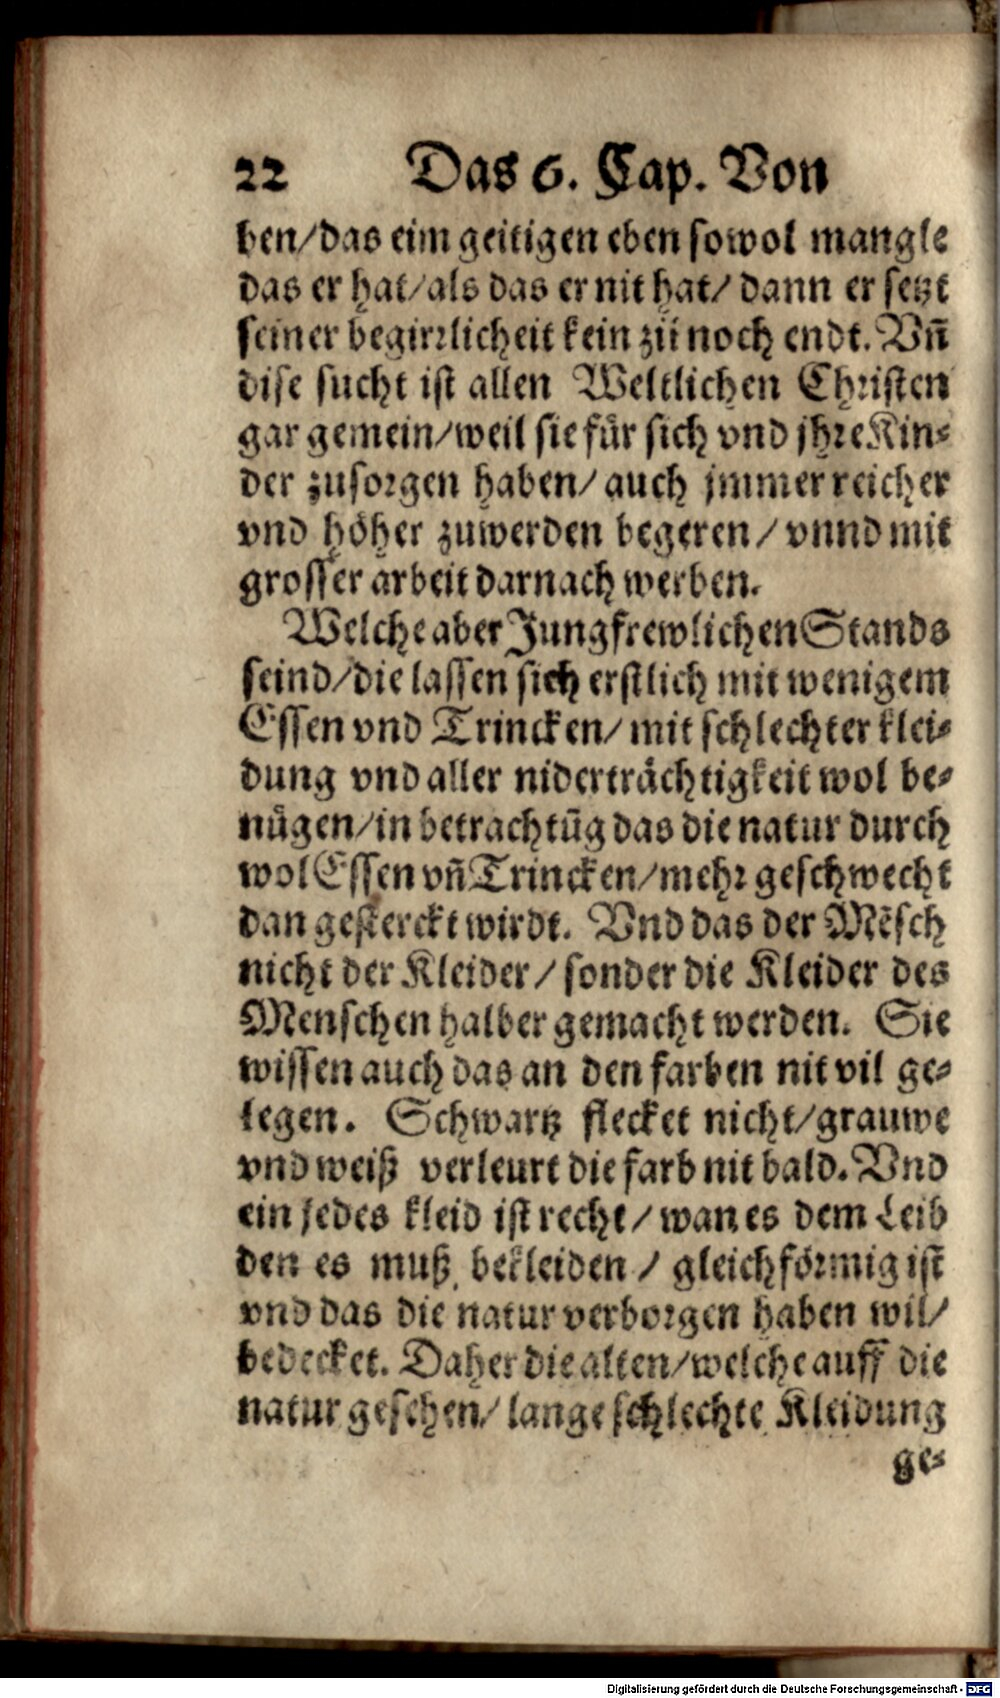 22 Das 6. Cap. Von
ben/das eim geitigen eben sowol mangle
das er hat/als das er nit hat/ dann er setzt
seiner begirrlicheit kein zil noch endt. Vñ
dise sucht ist allen Weltlichen Christen
gar gemein/weil sie für sich vnd jhre Kin-
der zusorgen haben/ auch jmmer reicher
vnd höher zuwerden begeren/ vnnd mit
grosser arbeit darnach werben.
Welche aber Jungfrewlichen Stands
seind/die lassen sich erstlich mit wenigem
Essen vnd Trincken/ mit schlechter klei-
dung vnd aller niderträchtigkeit wol be-
nügen/in betrachtũg das die natur durch
wol Essen vñ Trincken/mehr geschwecht
dan gesterckt wirdt. Vnd das der Mẽsch
nicht der Kleider/ sonder die Kleider des
Menschen halber gemacht werden. Sie
wissen auch das an den farben nit vil ge-
legen. Schwartz flecket nicht/grauwe
vnd weiß verleurt die farb nit bald. Vnd
ein jedes kleid ist recht/ wan es dem Leib
den es muß bekleiden/ gleichförmig ist
vnd das die natur verborgen haben wil/
bedecket. Daher die alten/welche auff die
natur gesehen/ lange schlechte Kleidung
ge-
Digitalisierung gefördert durch die Deutsche Forschungsgemeinschaft - DFG